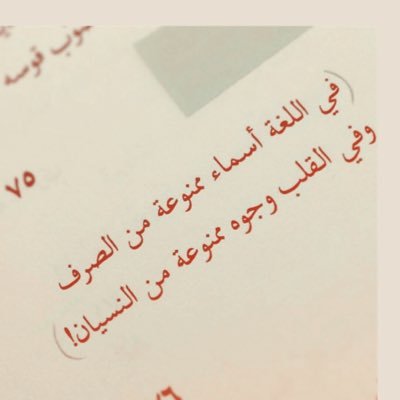 قوسه
٧٥
(في اللغة أسماء ممنوعة من الصرف
وفي القلب وجوه ممنوعة من النسيان!)
٧٦